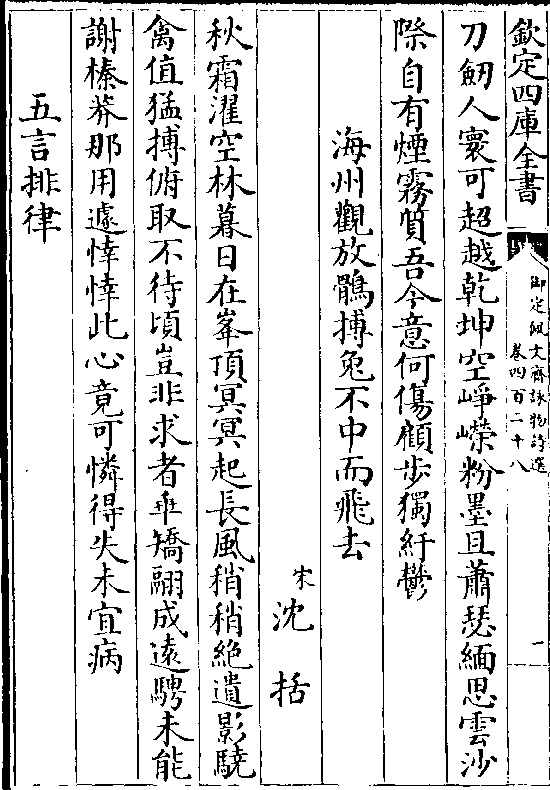 欽定四庫全書
御定佩文齋詠物詩選
卷四百二十八
一
刀劒人寰可超越乾坤空崢嶸粉墨且蕭瑟緬思雲沙
際自有煙霧質吾今意何傷顧步獨紆鬱
海州觀放鶻搏兔不中而飛去
宋沈括
秋霜濯空林暮日在峯頂冥冥起長風稍稍絶遺影驍
禽值猛搏俯取不待頃豈非求者乖矯翮成遠騁未能
謝榛莽那用遽悻悻此心竟可憐得失未宜病
五言排律